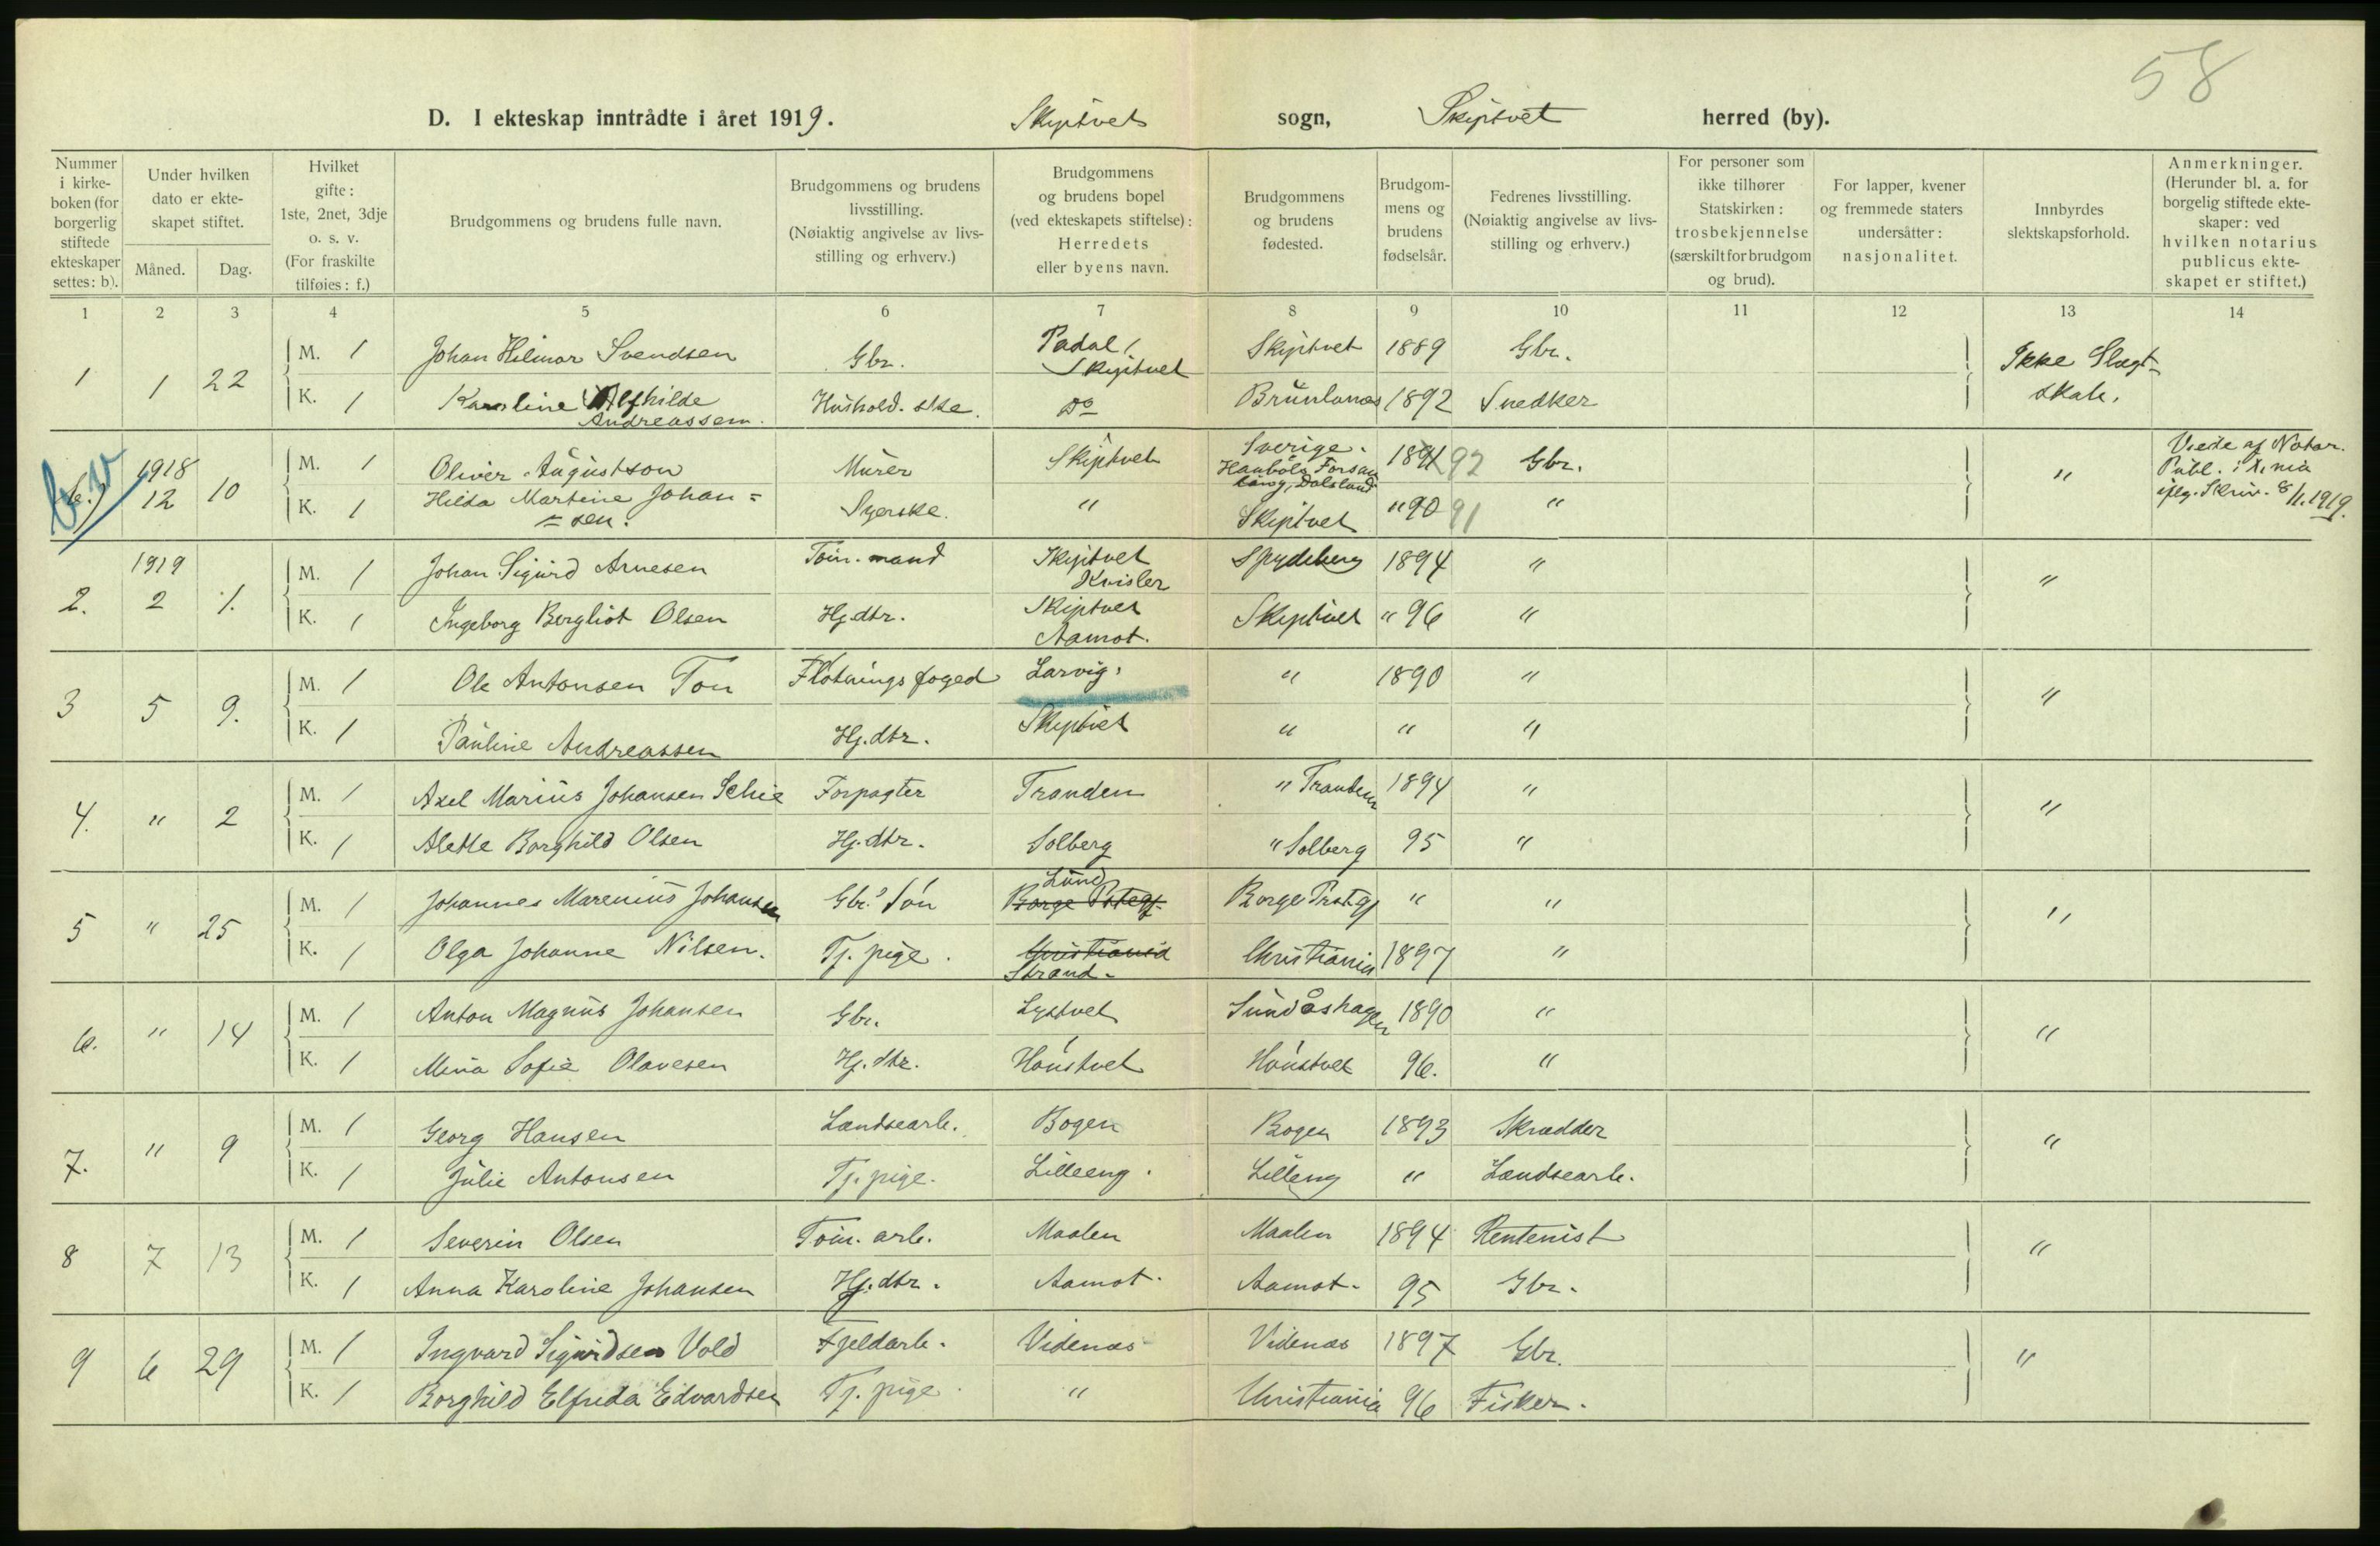 58
D. I ekteskap inntrådte i året 1919. Skiptvet sogn, Skiptvet herred (by).
Nummer i kirke-boken (for borgerlig stiftede ekteskaper settes: b).
Under hvilken dato er ekte-skapet stiftet.
Måned. Dag.
Hvilket gifte: 1ste, 2net, 3dje o. s. v. (For fraskilte tilføies: f.)
Brudgommens og brudens fulle navn.
Brudgommens og brudens livsstilling. (Nøiaktig angivelse av livs-stilling og erhverv.)
Brudgommens og brudens bopel (ved ekteskapets stiftelse): Herredets eller byens navn.
Brudgommens og brudens fødested.
Brudgom-mens og brudens fødselsår.
Fedrenes livsstilling. (Nøiaktig angivelse av livs-stilling og erhverv.)
For personer som ikke tilhører Statskirken: trosbekjennelse (særskilt for brudgom og brud).
For lapper, kvener og fremmede staters undersåtter: nasjonalitet.
Innbyrdes slektskapsforhold.
Anmerkninger. (Herunder bl. a. for borgelig stiftede ekte-skaper: ved hvilken notarius publicus ekte-skapet er stiftet.)
1 2 3 4 5 6 7 8 9 10 11 12 13 14
1 1 22 M. 1 Johan Hilmar Svendsen Gbr. Padal, Skiptvet Skiptvet 1889 Gbr. Ikke Slegt-skab.
K. 1 Karoline Alfhilde Andreassen. Hushold.ske. Do Brunlanes 1892 Snedker
1918 12 10 M. 1 Oliver Augustson Murer Skiptvet Sverige. Dalsland 1891 92 Gbr. " Viede af Notar. Publ. i Kr.nia iflg. Skriv. 8/1.1919.
K. 1 Hilda Martine Johan= =sen. Syerske. " Skiptvet " 90 91 "
2. 1919 2 1. M. 1 Johan Sigurd Arnesen Tøm.mand Skiptvet Kvisler Spydeberg 1894 " "
K. 1 Ingeborg Bergliot Olsen Hj.dtr. Skiptvet Aamot. Skiptvet " 96 "
3 5 9. M. 1 Ole Antonsen Ton Fløtningsfoged Larvig. " 1890 " "
K. 1 Pauline Andreassen Hj.dtr. Skiptvet " " "
4. " 2 M. 1 Axel Marius Johansen Schie Forpagter Tranden " Tranden 1894 " "
K. 1 Alette Borghild Olsen Hj.dtr. Solberg " Solberg 95 "
5 " 25 M. 1 Johannes Marenius Johansen Gbr.s Søn Lund Borge Pstegj. Borge Prstgj " " "
K. 1 Olga Johanne Nilsen. Tj. pige. Christiania Strand. Christiania 1897 "
6. " 14 M. 1 Anton Magnus Johansen Gbr. Lystvet Sundåshagen 1890 " "
K. 1 Mina Sofie Olavesen Hj.dtr. Hønstvet Hønstvet 96. "
7. " 9 M. 1 Georg Hansen Landsearb. Bogen Bogen 1893 Skrædder "
K. 1 Julie Antonsen Tj. pige. Lilleeng. Lilleng " Landsearb.
8 7 13 M. 1 Severin Olsen Tøm. arb. Maalen Maalen 1894 Rentenist "
K. 1 Anna Karoline Johansen Hj.dtr. Aamot. Aamot. 95 Gbr.
9 6 29 M. 1 Ingvard Sigurdsen Vold Fjeldarb. Videnæs Videnæs 1897 Gbr. "
K. 1 Borghild Elfrida Edvardsen Tj. pige. " Christiania 96 Fisker.